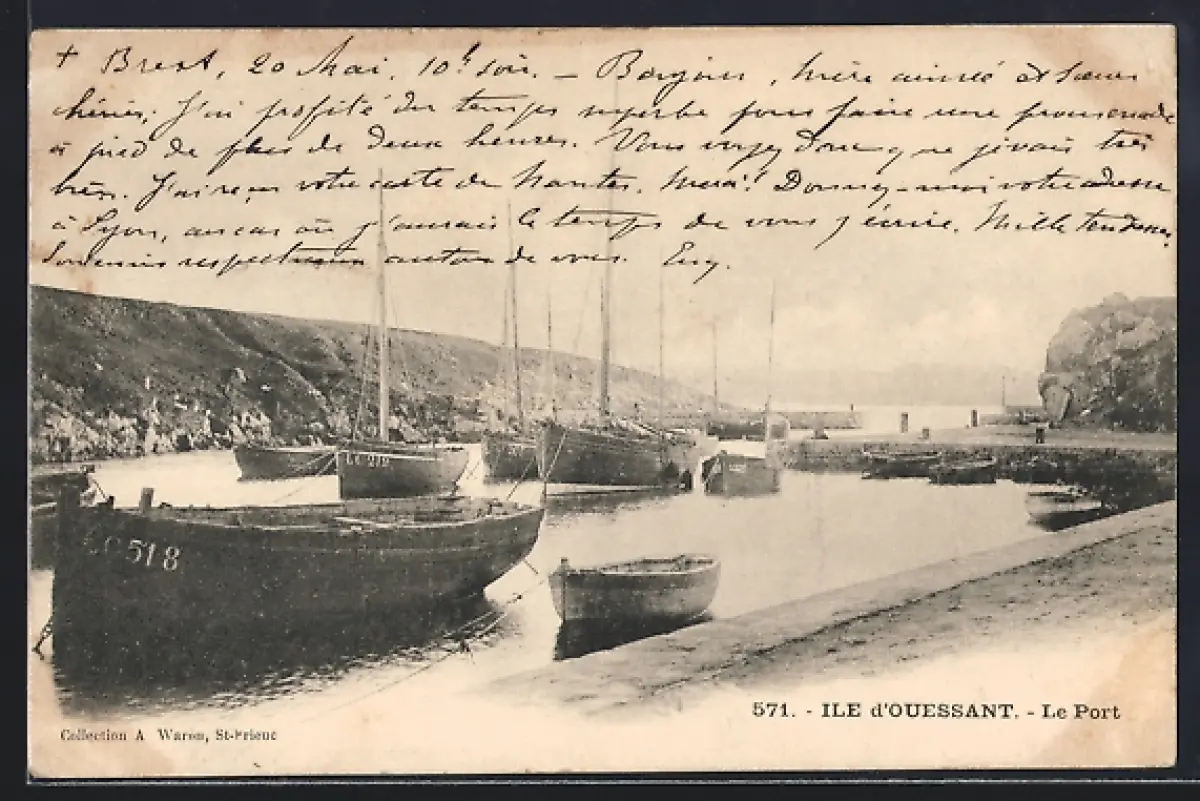 + Brest, 20 Mai, 10h. soir. – Bonjour, mère aimée et soeurs
chéries; J'ai profité du temps superbe pour faire une promenade
à pied de plus de deux heures. Vous voyez donc que je vais très
bien. J'ai reçu votre carte de Nantes. Merci! Donnez-moi votre adresse
à Lyon, au cas où j'aurais le temps de vous y écrire. Mille tendresses,
Souvenirs respectueux autour de vous. Eug.
LC 212
LC 518
571. - ILE d'OUESSANT. - Le Port
Collection A Waron, St-Brieuc